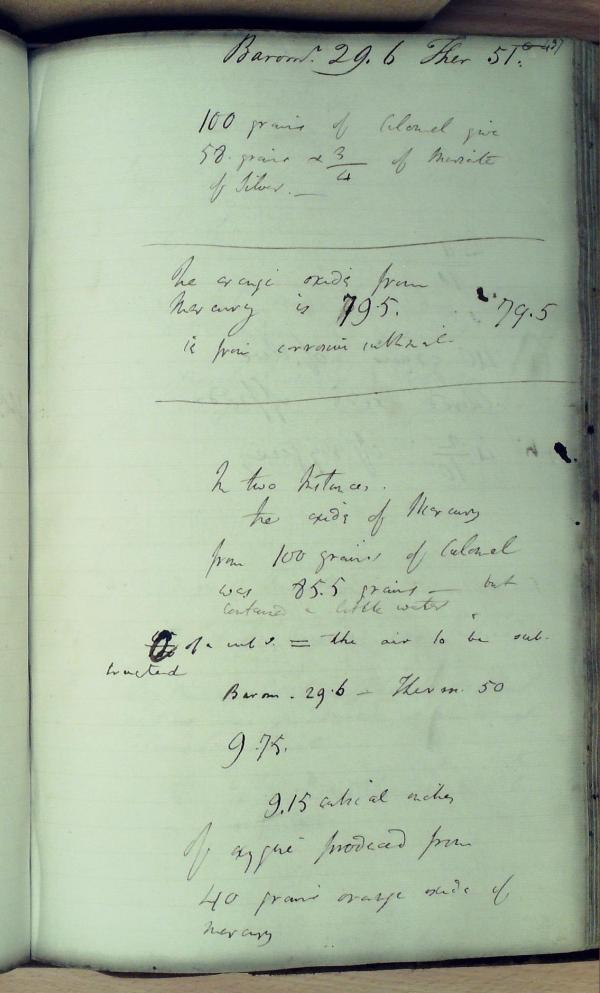 Barom.r 29.6 Ther 51.
100 grains of Calomel give
58 grains & 3/4 of Muriate
of Silver. —
The orange oxide from
Mercury is 795. 79.5
is from corrosive sublimate
In two Instances.
the oxide of Mercury
from 100 grains of Calomel
was 85.5 grains — but
contained a little water
of a cub I. = the air to be sub-
tracted
Barom. 29.6 — Therm. 50
9.75.
9.15 cubical inches
Of oxygene produced from
40 grains orange oxide of
Mercury